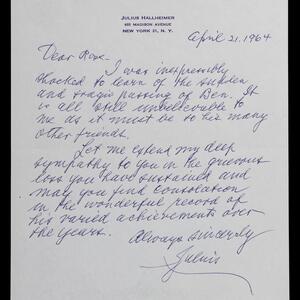 JULIUS HALLHEIMER
MADISON AVENUE
NEW YORK 21, N. Y.
April 21, 1964
Dear Rose-
I was inexpressibly
shocked to learn of the sudden
and tragic passing of Ben. It
is all still unbelievable to
me as it must be to his many
other friends.
Let me extend my deep
sympathy to you in the grievous
loss you have sustained and
may you find consolation
in the wonderful record of
his varied achievements over
the years.
Always sincerely
Julius